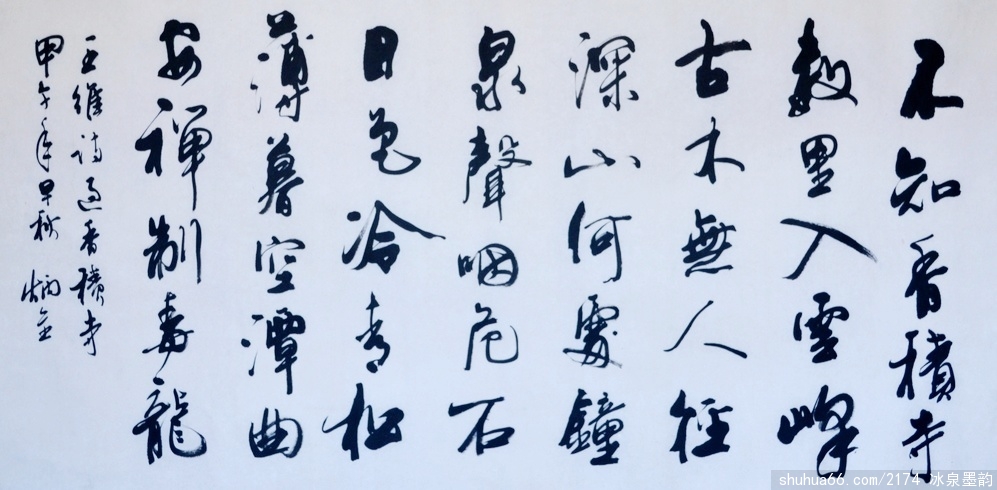 不知香積寺
數里入雲峰
古木無人徑
深山何處鐘
泉聲咽危石
日色冷青松
薄暮空潭曲
安禪制毒龍
王維詩過香積寺
甲午年早秋 炳金
shuhua66.com/2174 冰泉墨韵